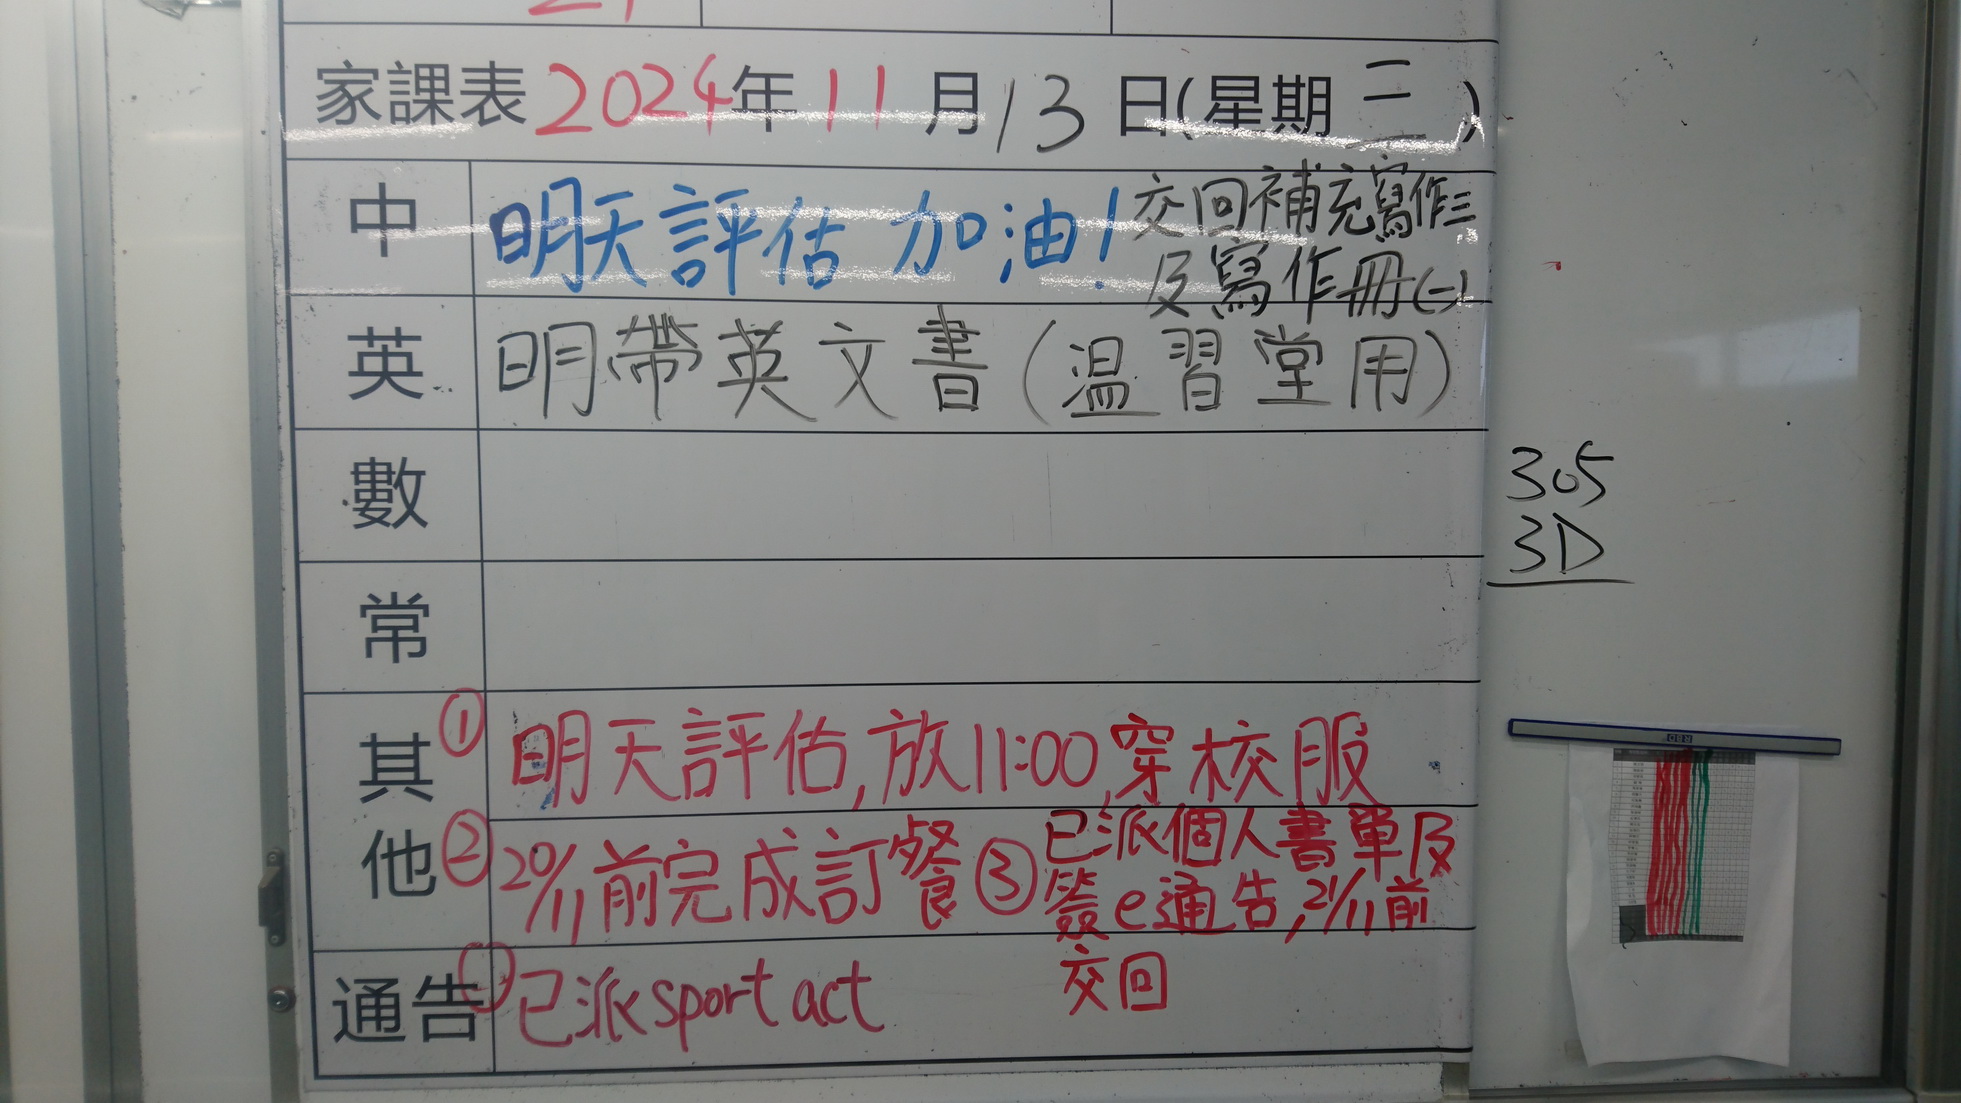 家課表2024年11月13日(星期三)
中 明天評估 加油! 交回補充寫作三
及寫作冊(二)
英 明帶英文書(温習堂用)
數
305
3D
常
其他
① 明天評估,放11:00,穿校服
② 20/11前完成訂餐 ③ 已派個人書單及
簽e通告,21/11前
交回
通告 ① 已派sport act